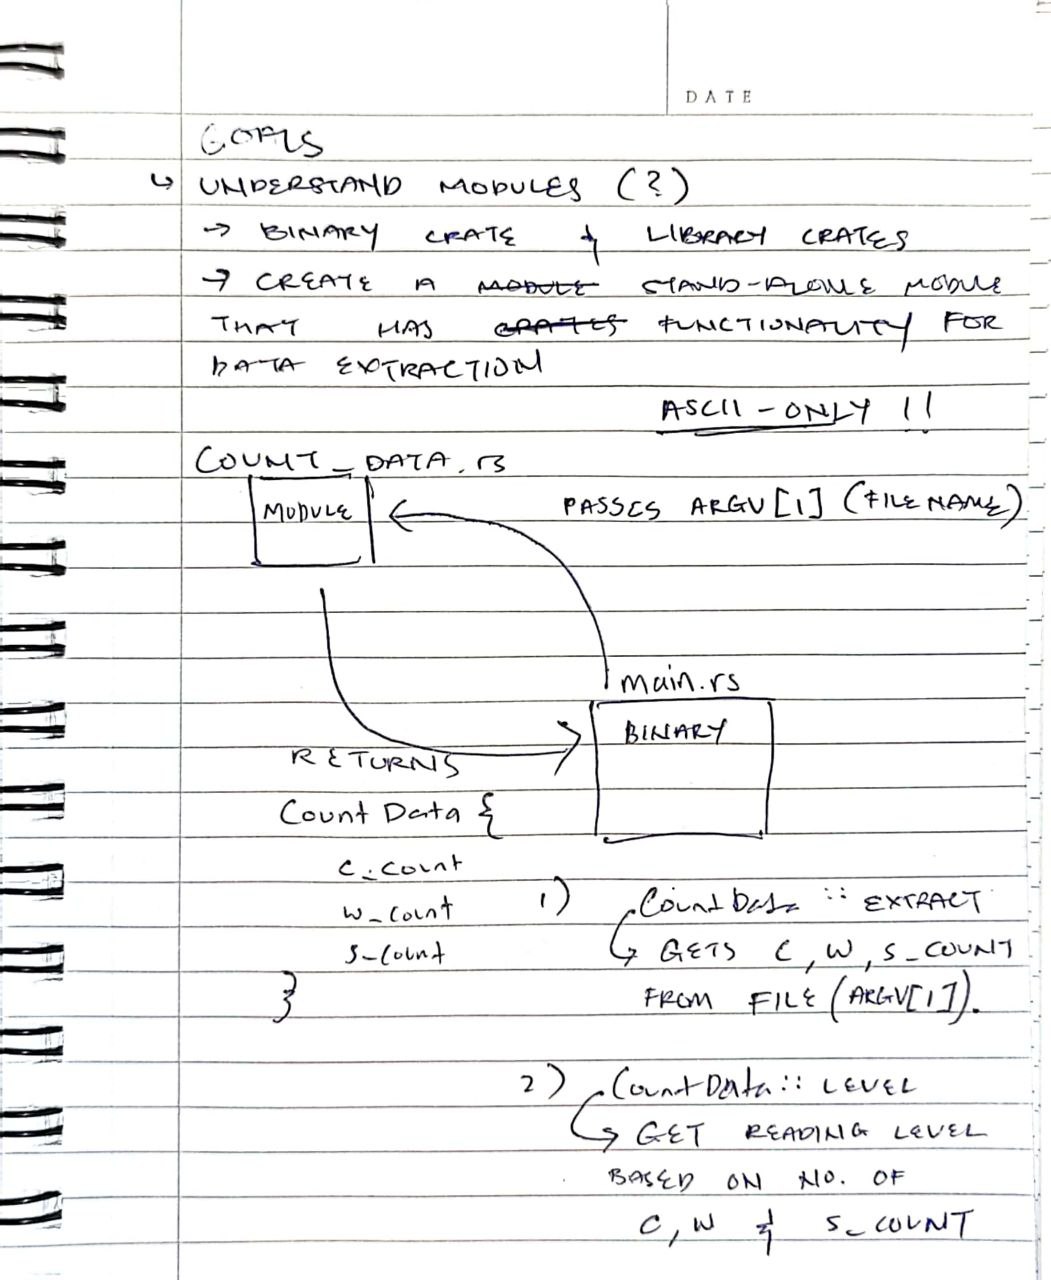 DATE
GOALS
↳ UNDERSTAND MODULES (?)
→ BINARY CRATE & LIBRARY CRATES
→ CREATE A MODULE STAND-ALONE MODULE
THAT HAS CRATES FUNCTIONALITY FOR
DATA EXTRACTION
ASCII-ONLY !!
COUNT_DATA.rs
MODULE
PASSES ARGV[1] (FILE NAME)
main.rs
BINARY
RETURNS
Count Data {
c_count
w_count
s_count
}
1) CountData :: EXTRACT
↳ GETS C, W, S_COUNT
FROM FILE (ARGV[1]).
2) CountData :: LEVEL
↳ GET READING LEVEL
BASED ON NO. OF
C, W & S_COUNT